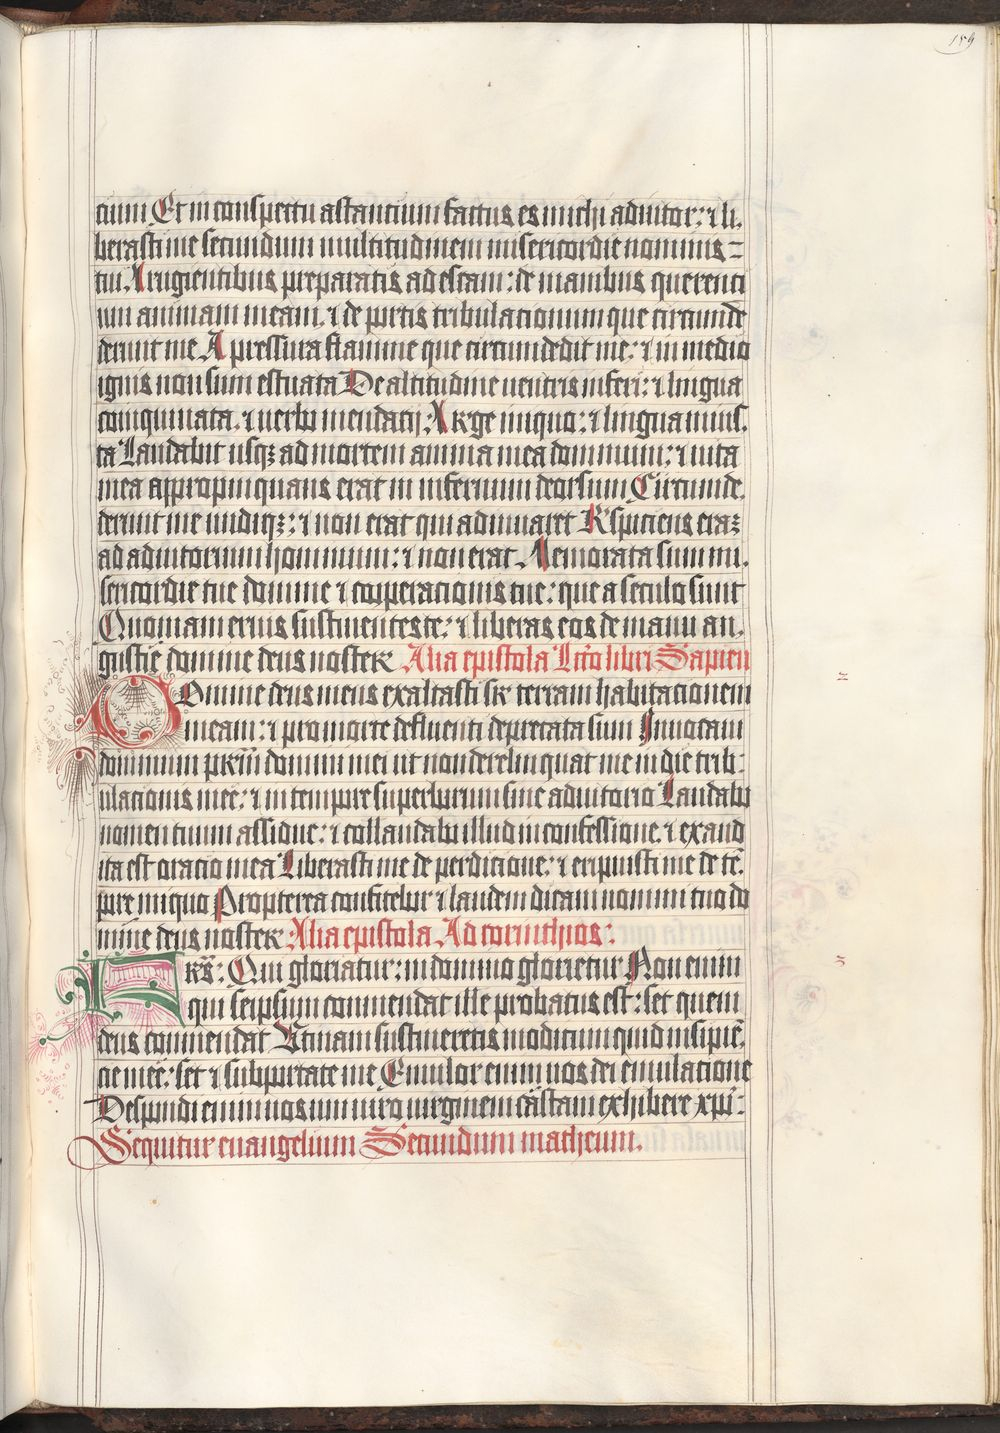 159
cium Et in conspectu astancium factus es michi adiutor: ⁊ li,
berasti me secundum multitudinem misericordie nominis =
tui, A rugientibus preparatis ad escam: de manibus querenci
um animam meam, ⁊ de portis tribulacionum que circumde
derunt me A pressura flamme que circumdedit me: ⁊ in medio
ignis non sum estuata De altitudine uentris inferi: ⁊ lingua
coinquinata, ⁊ uerbo mendatij: A Rege iniquo: ⁊ lingua inius,
ta Laudabit usqꝫ ad mortem anima mea dominum: ⁊ uita
mea appropinquans erat in infernum deorsum Circumde,
derunt me undiqꝫ: ⁊ non erat qui adiuuaret Respiciens eraꝫ
ad adiutorium hominum: ⁊ non erat Memorata sum mi,
sericordie tue domine ⁊ cooperacionis tue: que a seculo sunt
Quoniam eruis sustinentes te: ⁊ liberas eos de manu an,
gustie domine deus noster Alia epistola Lc̄o libri Sapien
Domine deus meus exaltasti sr̄ terram habitacionem
meam: ⁊ pro morte defluenti deprecata sum Inuocaui
dominum pr̄em domini mei ut non derelinquat me in die trib:
ulacionis mee: ⁊ in tempore superborum sine adiutorio Laudabo
nomen tuum assidue: ⁊ collaudabo illud in confessione, ⁊ exaud
ita est oracio mea Liberasti me de perdicione: ⁊ eripuisti me de tē,
pore iniquo Propterea confitebor ⁊ laudem dicam nomini tuo do
mine deus noster Alia epistola Ad corinthios:
FRs̄: Qui gloriatur: in domino glorietur Non enim
qui seipsum commendat ille probatus est: set quem
deus commendat Utinam sustineretis modicum quid insipiē,
cie mee: set ⁊ subportate me Emulor enim uos dei emulacione
Despondi enim uos uni uiro uirginem castam exhibere xp̄o:
Sequitur euangelium Secundum matheum.